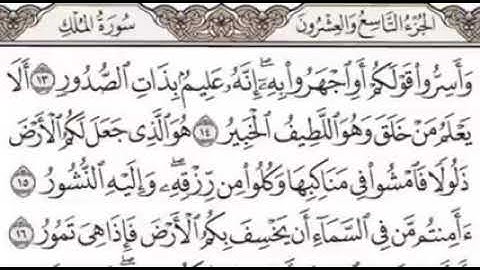 الجزء التاسع والعشرون سورة الملك
وَأَسِرُّوا۟ قَوْلَكُمْ أَوِ ٱجْهَرُوا۟ بِهِۦٓ إِنَّهُۥ عَلِيمٌۢ بِذَاتِ ٱلصُّدُورِ ١٣ أَلَا
يَعْلَمُ مَنْ خَلَقَ وَهُوَ ٱللَّطِيفُ ٱلْخَبِيرُ ١٤ هُوَ ٱلَّذِى جَعَلَ لَكُمُ ٱلْأَرْضَ
ذَلُولًا فَٱمْشُوا۟ فِى مَنَاكِبِهَا وَكُلُوا۟ مِن رِّزْقِهِۦ وَإِلَيْهِ ٱلنُّشُورُ ١٥
ءَأَمِنتُم مَّن فِى ٱلسَّمَآءِ أَن يَخْسِفَ بِكُمُ ٱلْأَرْضَ فَإِذَا هِىَ تَمُورُ ١٦